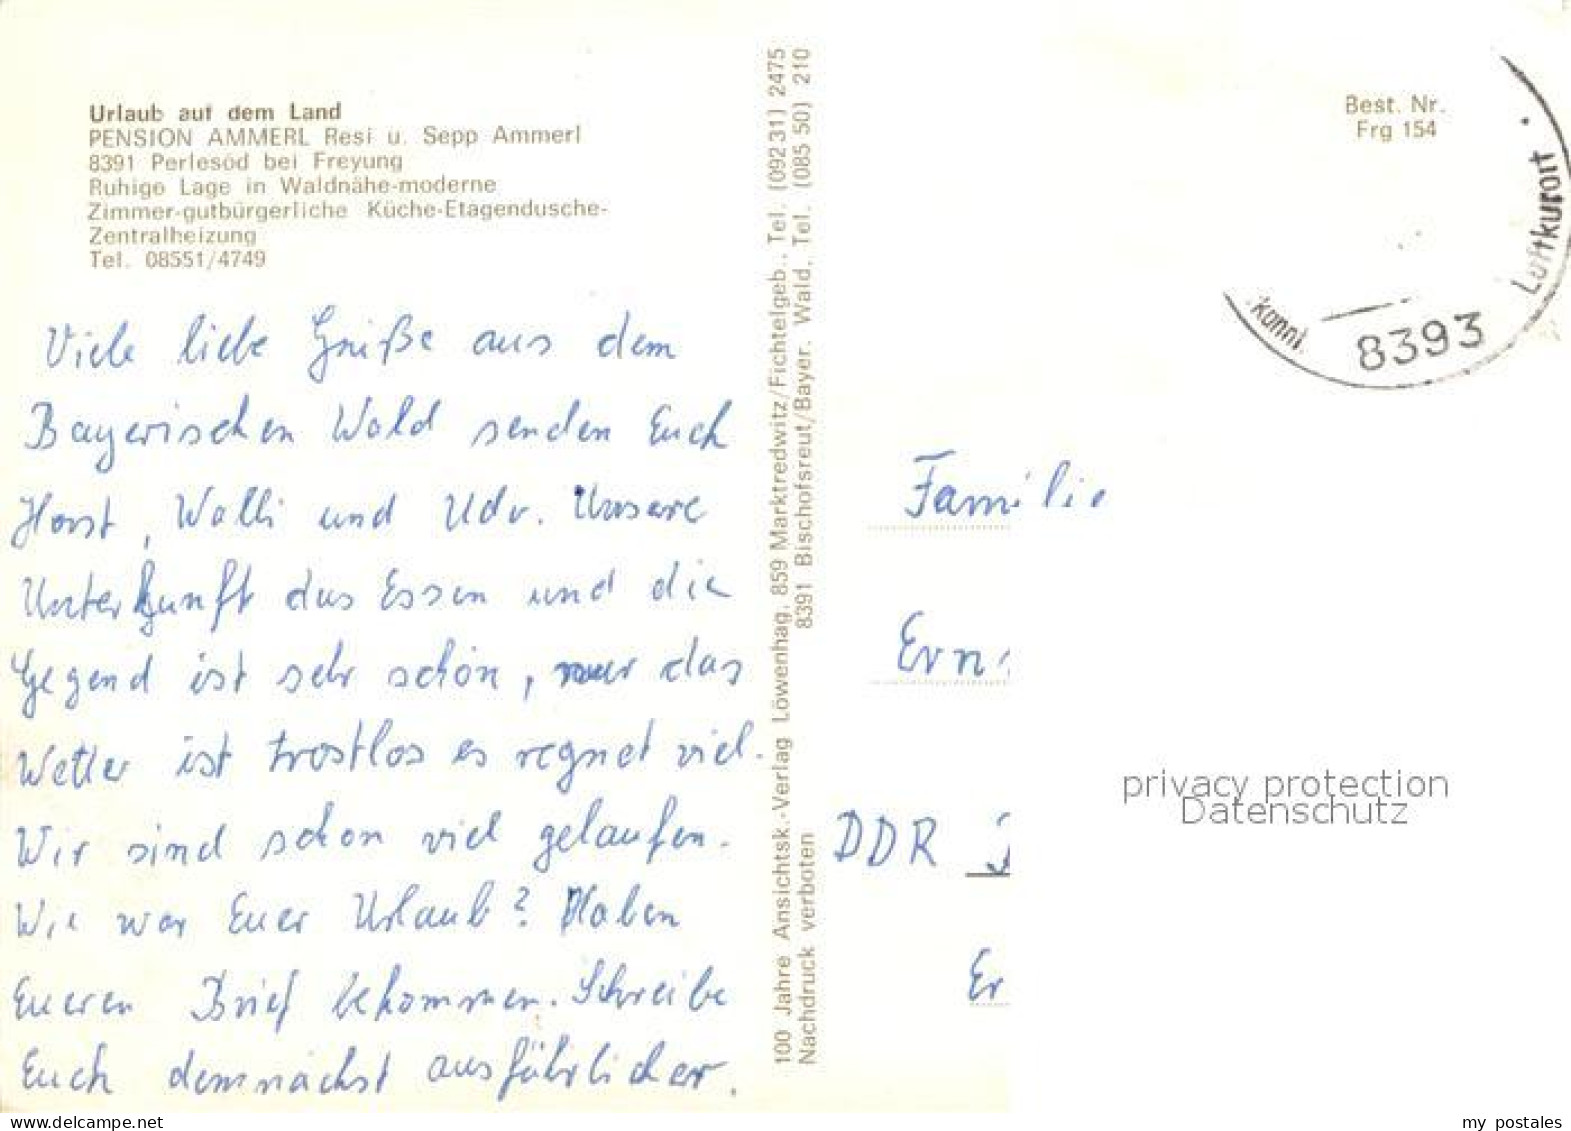 Urlaub auf dem Land
PENSION AMMERL Resi u. Sepp Ammerl
8391 Perlesöd bei Freyung
Ruhige Lage in Waldnähe-moderne
Zimmer-gutbürgerliche Küche-Etagendusche-
Zentralheizung
Tel. 08551/4749
Viele liebe Grüße aus dem
Bayerischen Wald senden Euch
Horst, Walli und Udo. Unsere
Unterkunft das Essen und die
Gegend ist sehr schön, nur das
Wetter ist trostlos es regnet viel.
Wir sind schon viel gelaufen.
Wie war Euer Urlaub? Haben
Eueren Brief bekommen. Schreibe
Euch demnächst ausführlicher.
100 Jahre Ansichtsk.-Verlag Löwenhag, 859 Marktredwitz/Fichtelgeb., Tel. (09231) 2475
Nachdruck verboten 8391 Bischofsreut/Bayer. Wald, Tel. (085 50) 210
Best. Nr.
Frg 154
Luftkurort
8393
Familie
Ern
DDR
Er
privacy protection
Datenschutz
www.delcampe.net
my_postales